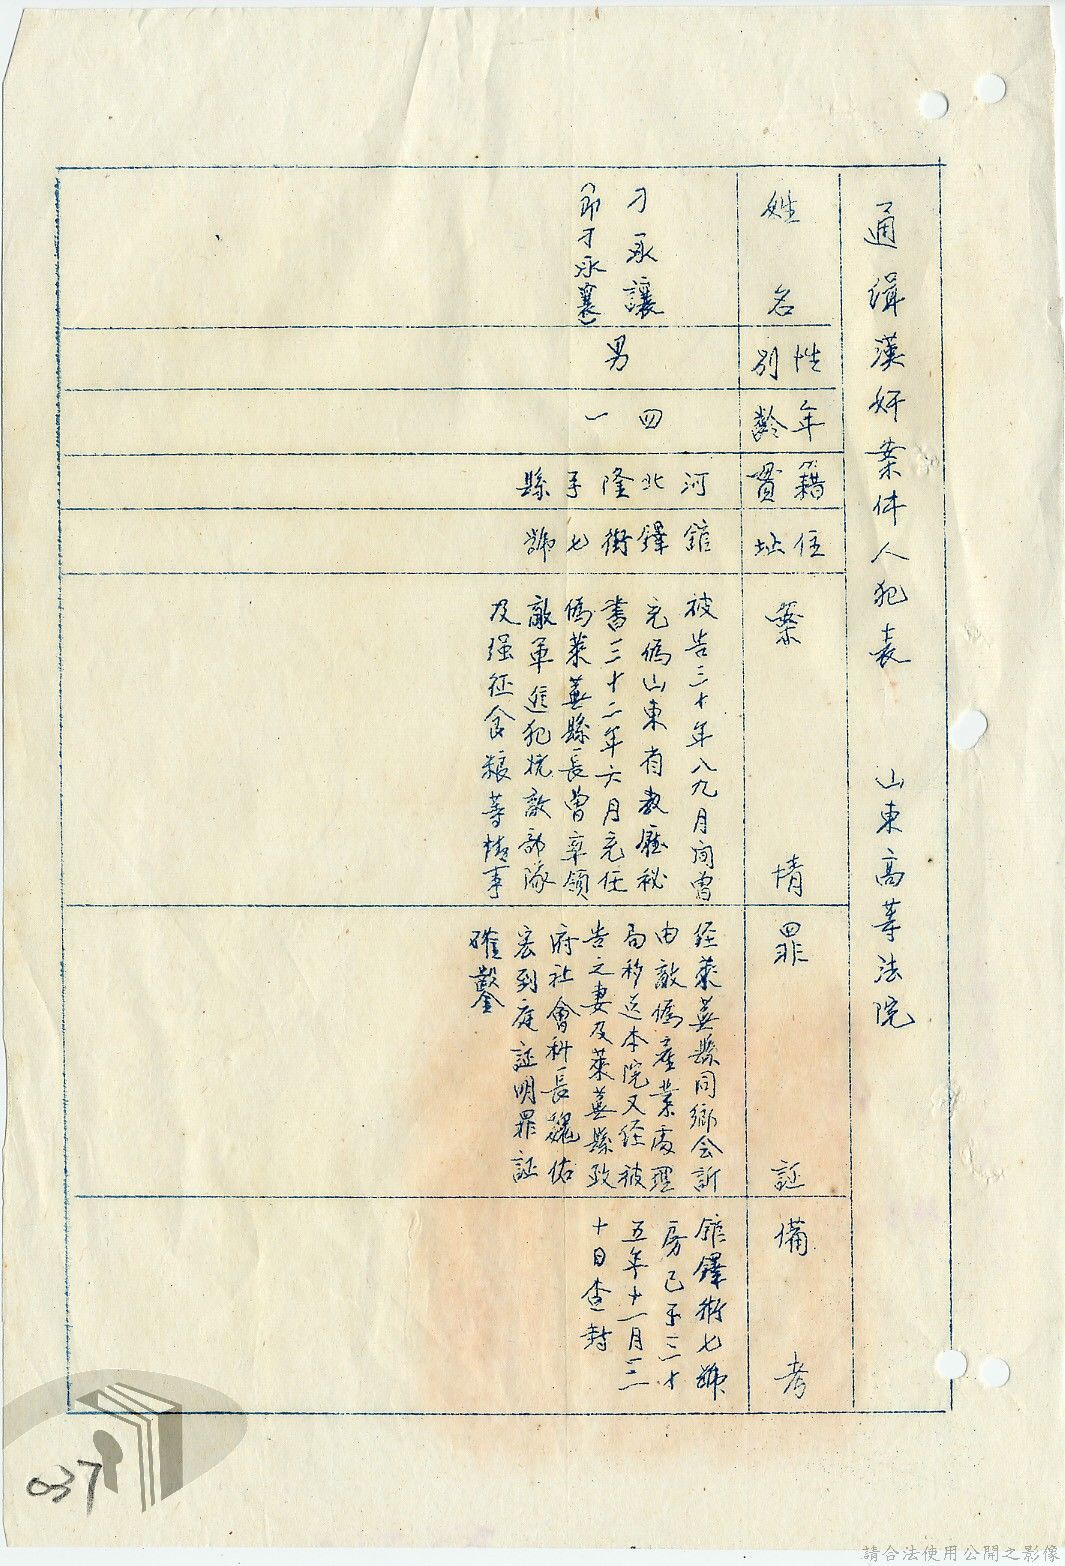 通緝漢奸案件人犯表　山東高等法院
姓名
刁承讓
(即刁承襄)
性別
男
年齡
四一
籍貫
河北隆平縣
住址
館驛街七號
案情
被告三十年八九月間曾
充偽山東省教廳秘
書三十二年六月充任
偽萊蕪縣長曾率領
敵軍進犯抗敵部隊
及強征食糧等情事
罪証
經萊蕪縣同鄉会訴
由敵偽產業處理
局移送本院又經被
告之妻及萊蕪縣政
府社會科長魏佑
宏到庭証明罪証
確鑿
備考
館驛街七號
房已于三十
五年十一月三
十日查封
037
請合法使用公開之影像